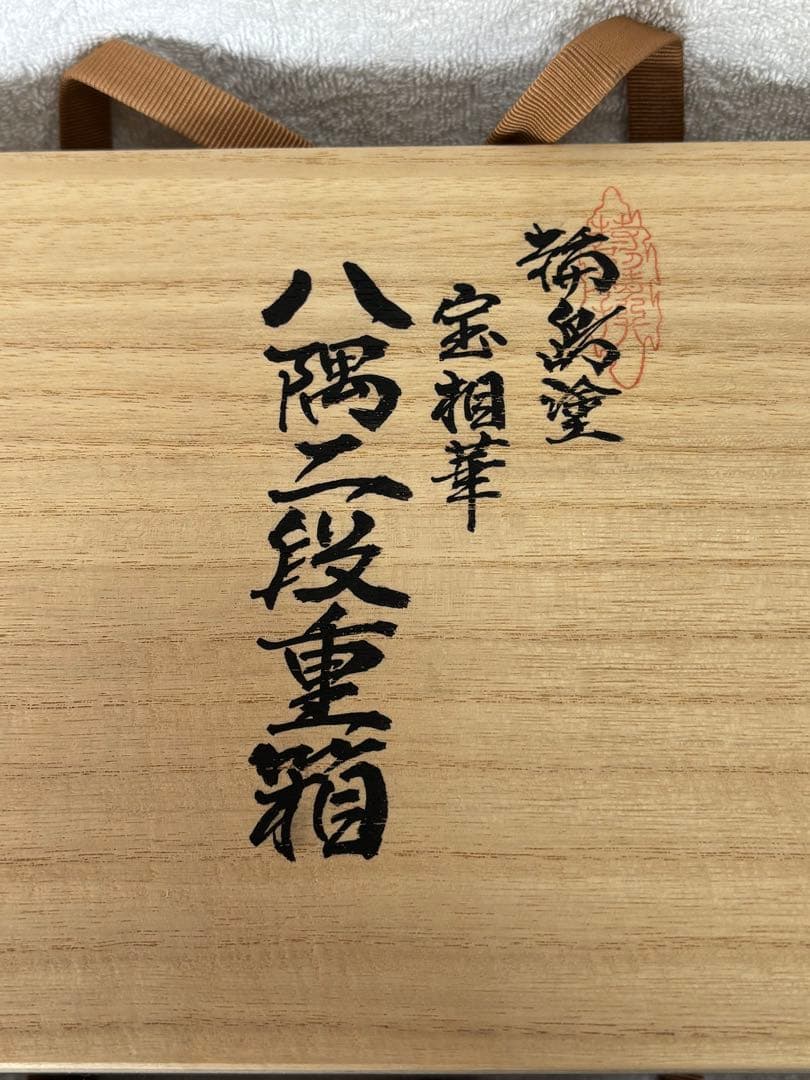 輪島塗
宝相華
八隅二段重箱